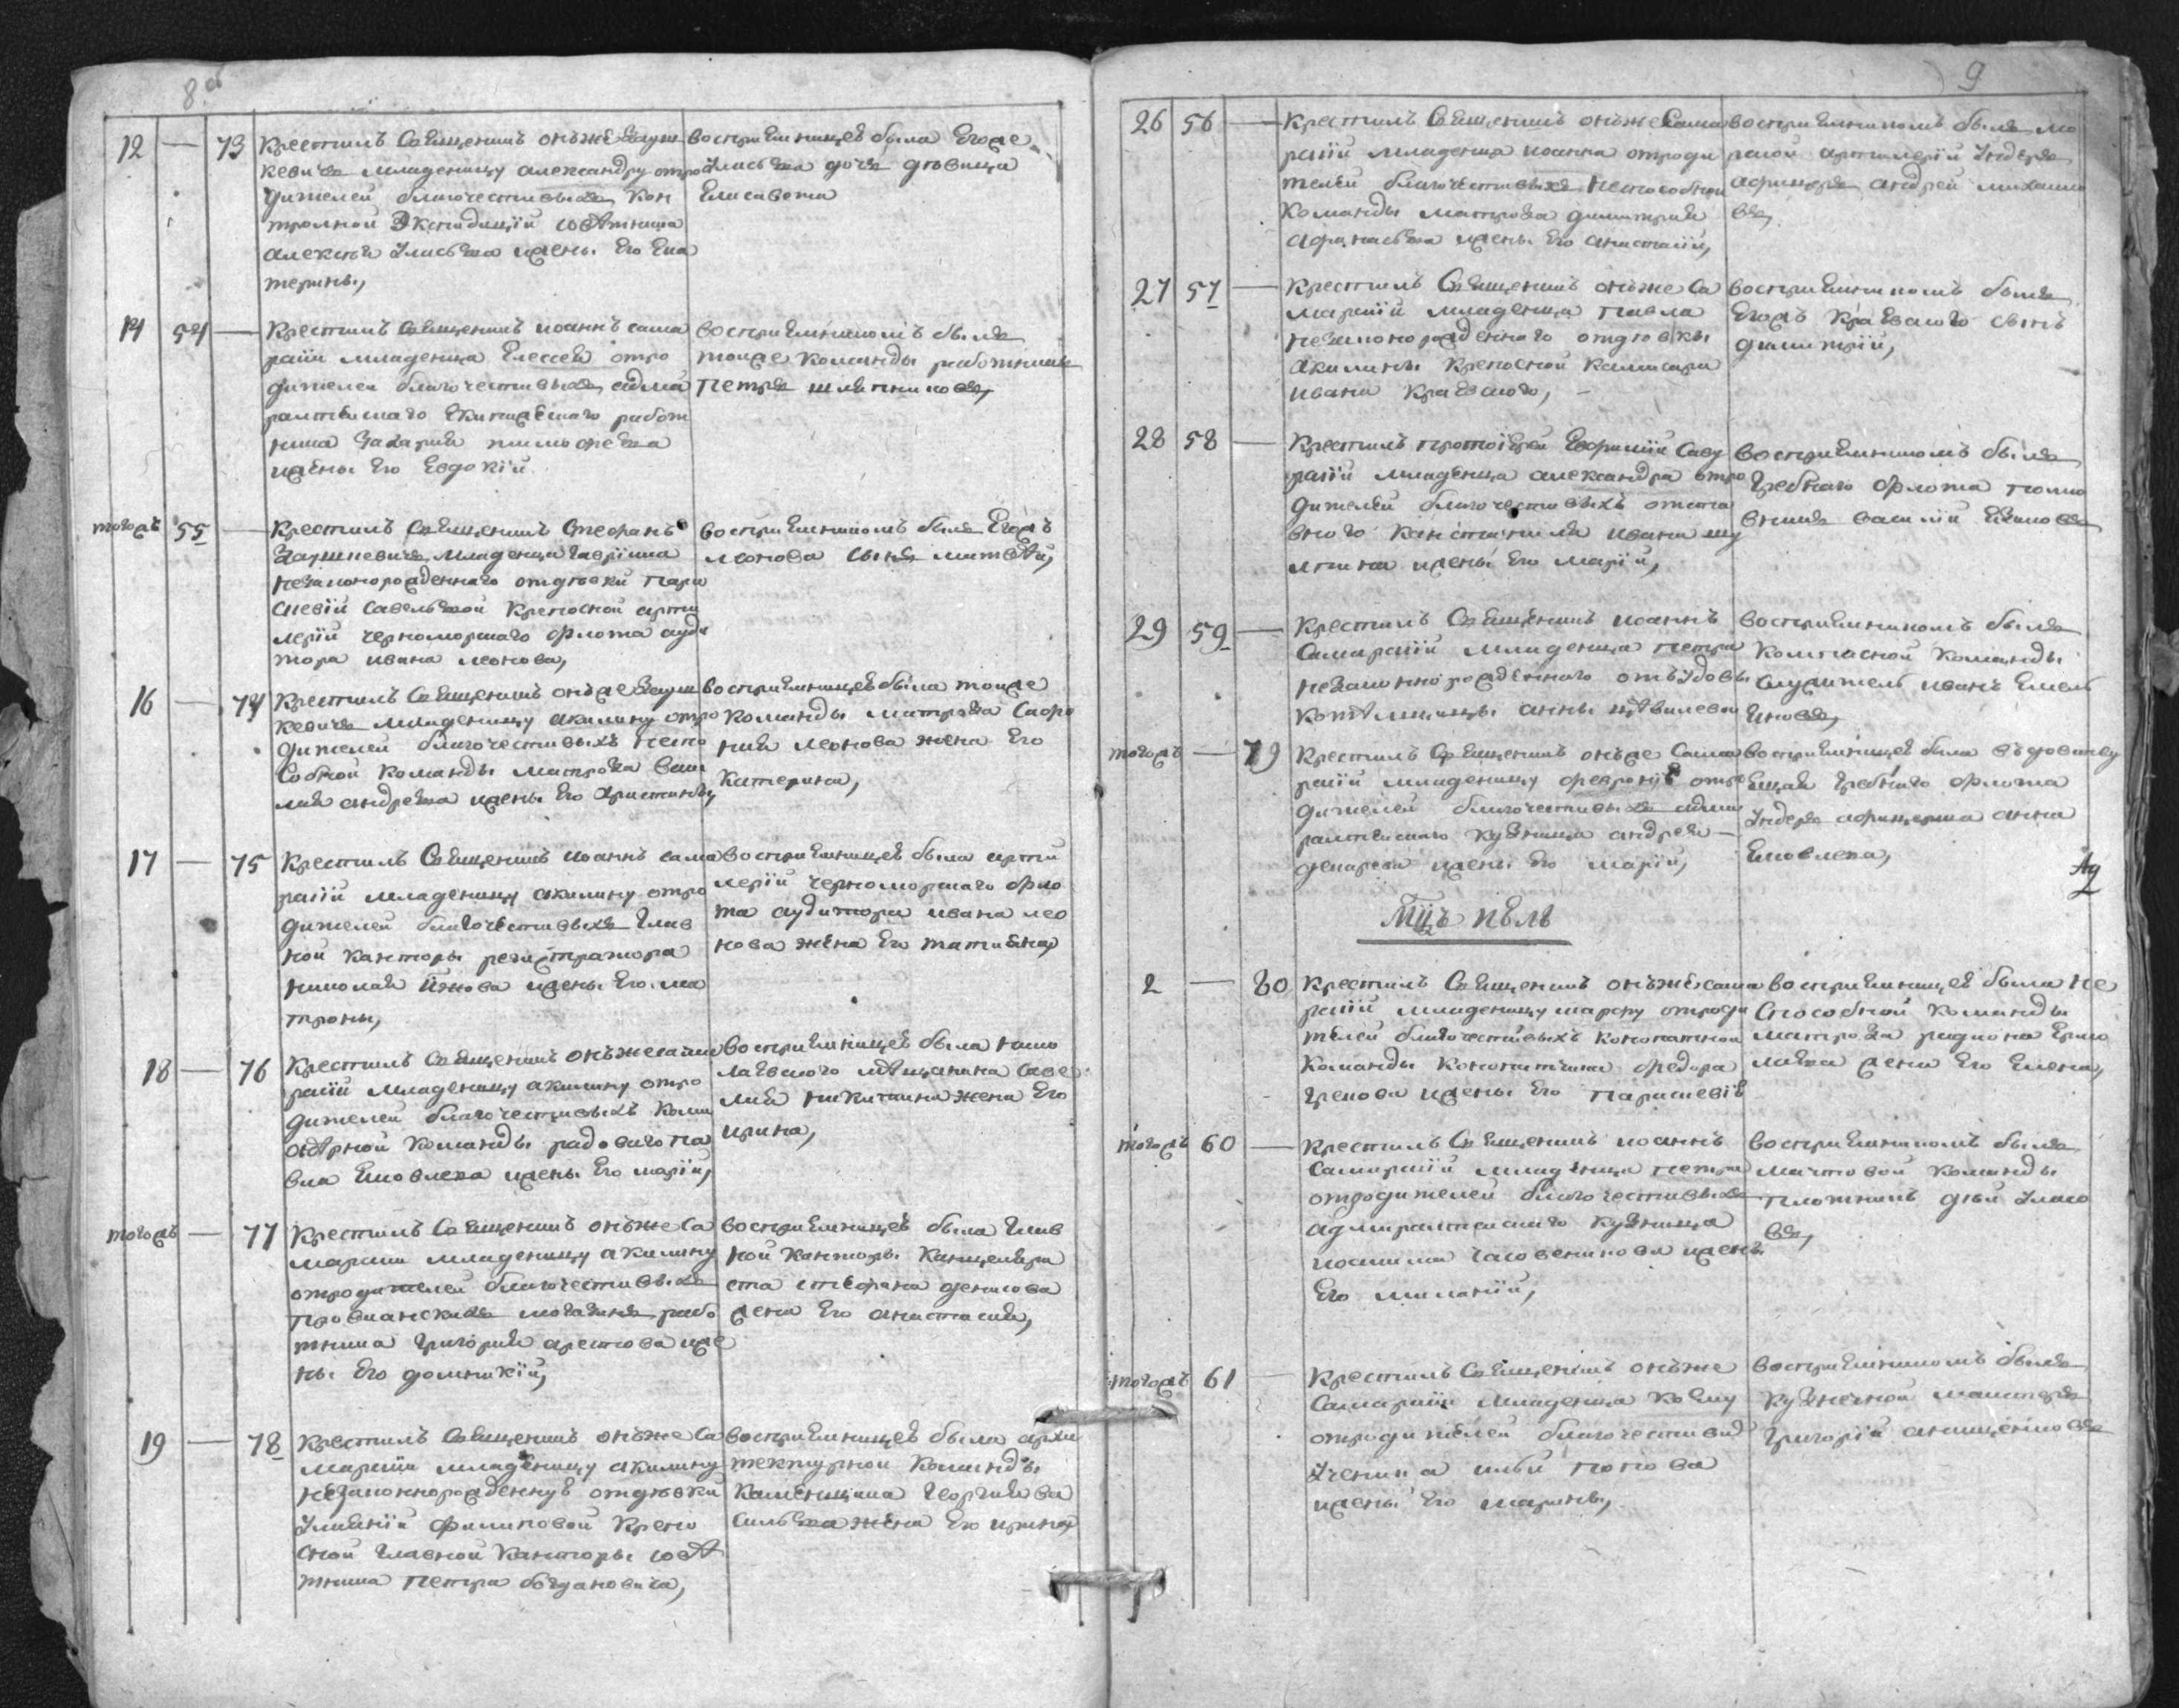 8 об
12 — 73 Крестилъ Священникъ онъже Зауш
кевичъ младеницу александру отро
дителей благочестивыхъ кон
тролной Экспедиціи совѣтника
алексѣя Ульсъ жены Его Ека
терины,
восприемницею была Егоже
дочь дѣвица
Елисавета
14 54 — Крестилъ Священникъ иоаннъ сама
рскіи младенца Елесея отро
дителей благочестивыхъ адми
ралтейского работ
ника Захария тимофеева
жены Его Евдокіи
восприемникомъ былъ
тоиже команды работникъ
Петръ шляпниковъ,
тогожъ 55 — Крестилъ Священникъ Стефанъ
Заушкевичъ младенца гавріила
незаконорожденнаго отдѣвки пара
скевіи савельевой крепосной арти
леріи черноморскаго флота ауди
тора ивана леонова,
восприемникомъ былъ Егожъ
леонова сынъ матвѣй,
16 — 74 Крестилъ Священникъ онъже Зауш
кевичъ младеницу акилину отро
дителей благочестивыхъ неспо
собной команды матроза васи
лия андреева жены Его христины,
восприемницею была тоиже
команды матроза Софро
ния леонова жена Его
катерина,
17 — 75 Крестилъ Священникъ иоаннъ сама
рскій младеницу акилину отро
дителей благочестивыхъ глав
ной канторы регистратора
николая жены Его ма
троны,
восприемницею была арти
леріи черноморскаго фло
та аудитора ивана лео
нова жена Его татияна,
18 — 76 Крестилъ Священникъ онъже сама
рскій младеницу акилину отро
дителей благочестивыхъ коми
сиѣрной команды радоваго па
вла Яковлева жены Его маріи,
восприемницею была нико
лаевского мѣщанина Саве
лия никитина жена Его
ирина,
тогожъ — 77 Крестилъ Священникъ онъже Са
марскіи младеницу акилину
отродителей благочестивыхъ
провианскихъ магазинъ рабо
тника григория жарестова же
ны Его домникіи,
восприемницею была глав
ной канторы канцеляри
ста стефана денисова
жена Его анастасия,
19 — 78 Крестилъ Священникъ онъже Са
марскіи младеницу акилину
незаконнорожденную отдѣвки
Улияніи филиповой крепо
сной главной канторы совѣ
тника петра богдановича,
восприемницею была архи
тектурной команды
каменщика георгия ва
сильева жена Его ирина,
9
26 56 — Крестилъ Священникъ онъже Сама
рскій младенца иоанна отроди
телей благочестивыхъ неспособной
команды матроза димитрия
афанасьева жены Его анастасіи,
восприемникомъ былъ мо
рской артилеріи Ундеръ
афицеръ андрей михаило
въ,
27 57 — Крестилъ Священникъ онъже Са
марскій младенца павла
незаконорожденного отдѣвки
акилины крепосной камисара
ивана краевского, —
восприемникомъ былъ
Егожъ краевского сынъ
димитрій,
28 58 — Крестилъ протоіерей Евфиміи Саву
рскій младенца александра отро
дителей благочестивыхъ отста
вного ивана шу
жены Его маріи,
восприемникомъ былъ
гребнаго флота полко
вникъ василій
29 59 — Крестилъ Священникъ иоаннъ
Самарскій младенца петра
незаконнорожденного отъудовы
анны
восприемникомъ былъ
компасной команды
служитель иванъ Емель
яновъ,
тогожъ — 79 Крестилъ Священникъ онъже Сама
рскій младеницу февронію отро
дителей благочестивыхъ адми
ралтейского кузница андрея —
жены Его маріи,
восприемницею была въдовству
ющая гребнаго флота
Ундеръ афицерша анна
Яковлева,
Мцъ июль
2 — 80 Крестилъ Священникъ онъже сама
рскій младеницу марфу отроди
телей благочестивыхъ конопатной
команды конопатчика федора
грекова жены Его параскевіи
восприемницею была не
способной команды
матроза радиона Ермо
лаева жена Его Елена,
тогожъ 60 — Крестилъ Священникъ иоаннъ
Самарскій младенца петра
отродителей благочестивыхъ
адмиралтейского кузница
иоакима часовеникова жены
Его миланіи,
восприемникомъ былъ
мачтовой команды
плотникъ
въ,
тогожъ 61 — Крестилъ Священникъ онъже
Самарскіи младенца козму
отродителей благочестивы
Ученика ильи попова
жены Его марины,
восприемникомъ былъ
кузнечной маистеръ
григорій онищенковъ